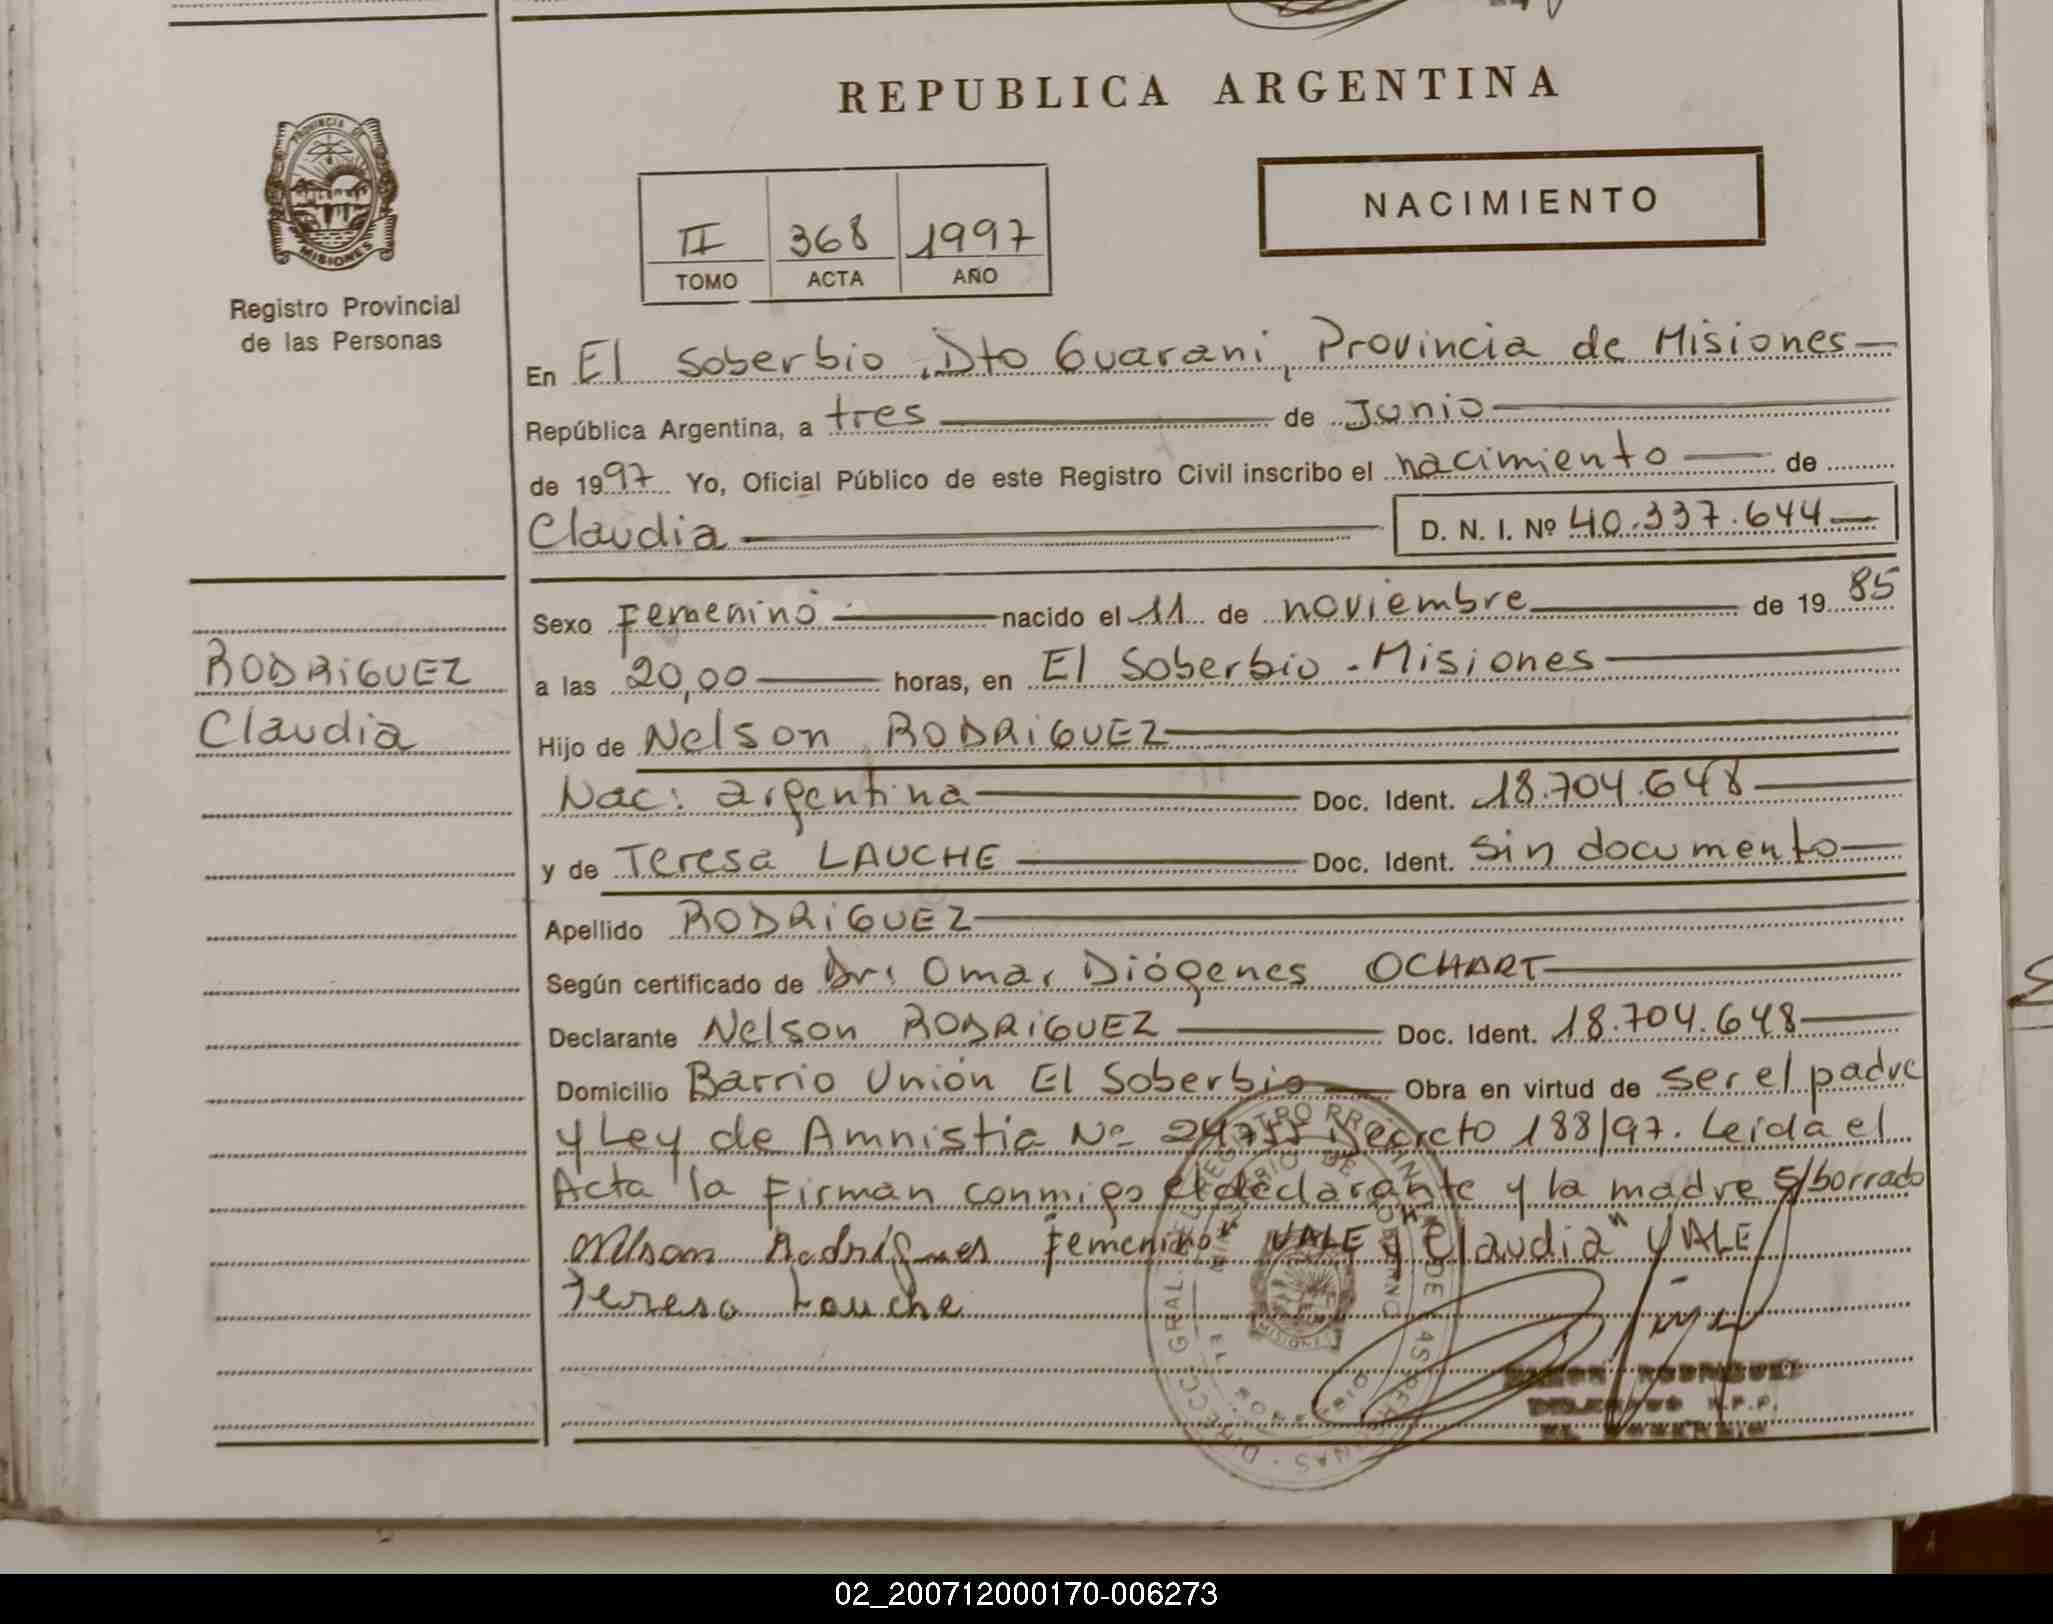 REPUBLICA ARGENTINA
NACIMIENTO
II 368 1997
TOMO ACTA AÑO
PROVINCIA DE MISIONES
Registro Provincial
de las Personas
En El Soberbio, Dto Guarani, Provincia de Misiones
República Argentina, a tres de Junio
de 1997 Yo, Oficial Público de este Registro Civil inscribo el nacimiento de
Claudia D. N. I. Nº 40.337.644
Sexo Femenino nacido el 11 de noviembre de 19 85
RODRIGUEZ
Claudia
a las 20,00 horas, en El Soberbio - Misiones
Hijo de Nelson RODRIGUEZ
Nac: argentina Doc. Ident. 18.704.648
y de Teresa LAUCHE Doc. Ident. sin documento
Apellido RODRIGUEZ
Según certificado de Dr: Omar Diógenes OCHART
Declarante Nelson RODRIGUEZ Doc. Ident. 18.704.648
Domicilio Barrio Unión El Soberbio Obra en virtud de ser el padre
y Ley de Amnistia Nº 24755 Decreto 188/97. Leida el
Acta la Firman conmigo el declarante y la madre s/borrado
Nelson Rodrigues Femenino" VALE y "Claudia" VALE
Teresa Lauche
RODRIGUEZ
R.P.P.
EL SOBERBIO
02_200712000170-006273